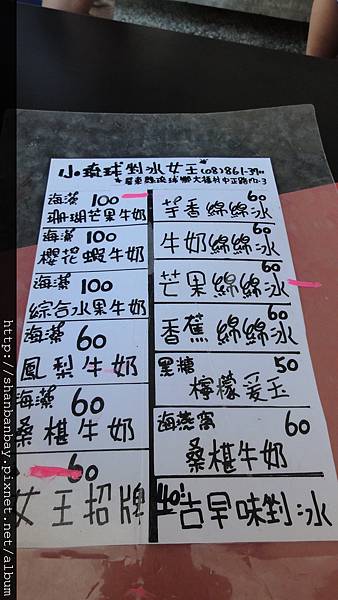 小琉球剉冰女王
海藻 100
珊瑚芒果牛奶
海藻 100
櫻花蝦牛奶
海藻 100
綜合水果牛奶
海藻 60
鳳梨牛奶
海藻 60
桑椹牛奶
60
女王招牌
60
芋香綿綿冰
60
牛奶綿綿冰
60
芒果綿綿冰
60
香蕉綿綿冰
黑糖 50
檸檬爱玉
海燕窩 60
桑椹牛奶
40
古早味剉冰
http://shanbanbay.pixnet.net/album